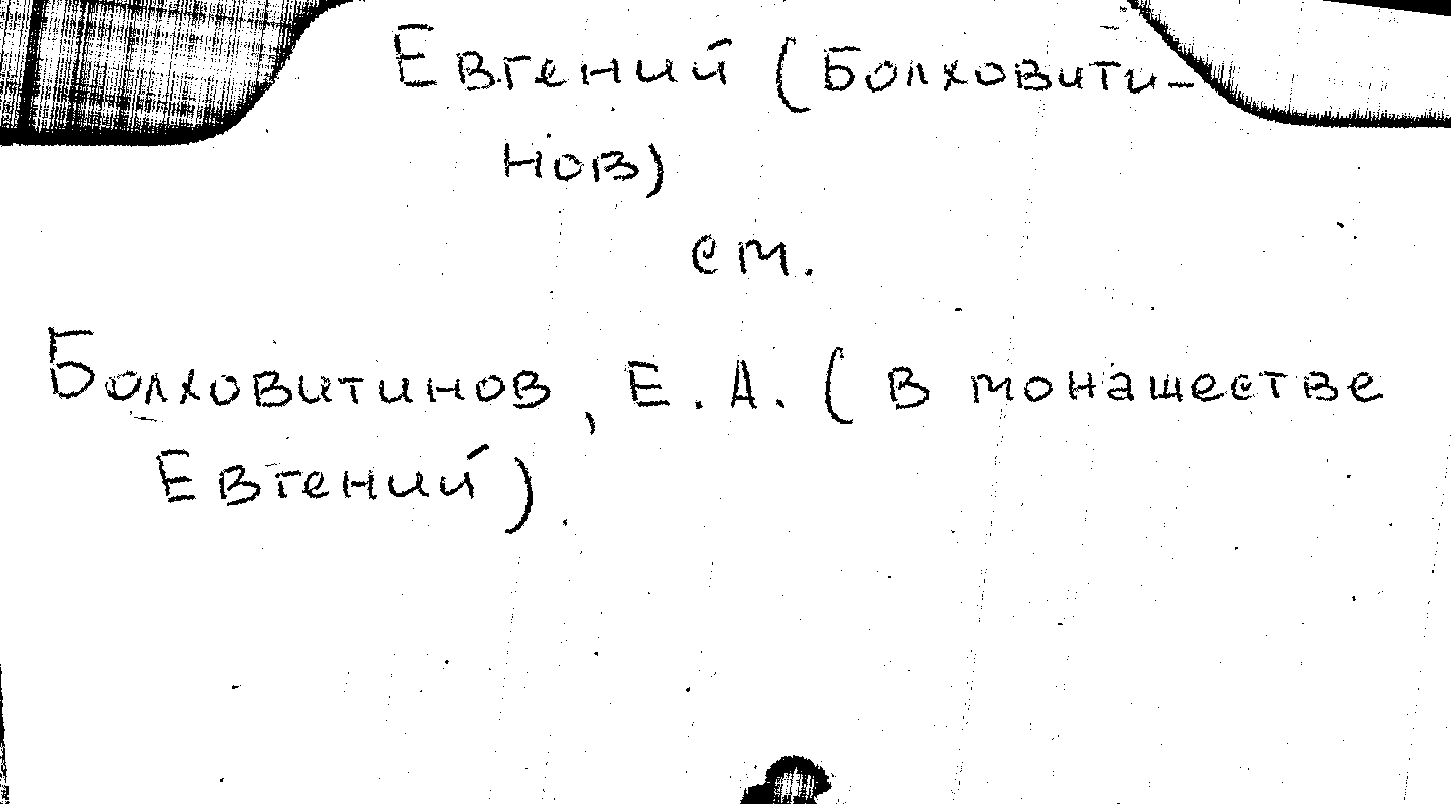 Евгений (Болховити-
нов)
см.
Болховитинов, Е. А. (в монашестве
Евгений).